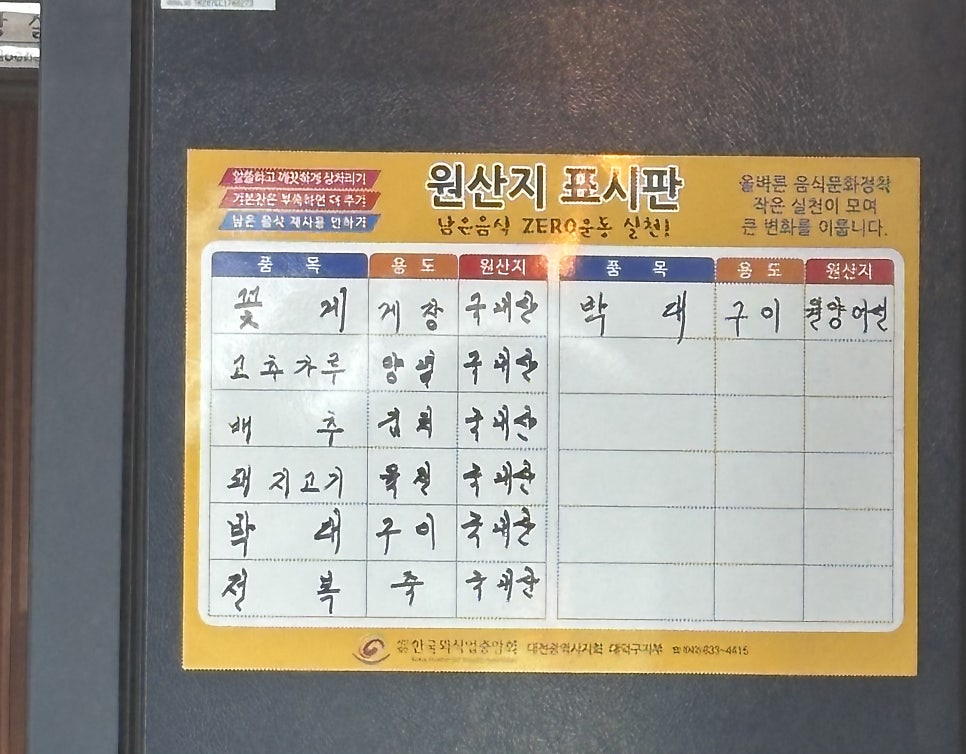 알뜰하고 깨끗하게 상차리기
기본찬은 부족하면 더 추가
남은 음식 재사용 안하기
원산지 표시판
남은음식 ZERO운동 실천!
올바른 음식문화정착
작은 실천이 모여
큰 변화를 이룹니다.
품 목 용 도 원산지 품 목 용 도 원산지
꽃 게 게 장 국내산 박 대 구 이 원양어선
고추가루 양념 국내산
배 추 김치 국내산
돼지고기 육전 국내산
박 대 구 이 국내산
전 복 죽 국내산
한국외식업중앙회 대전광역시지회 대덕구지부 ☎(042)633-4415